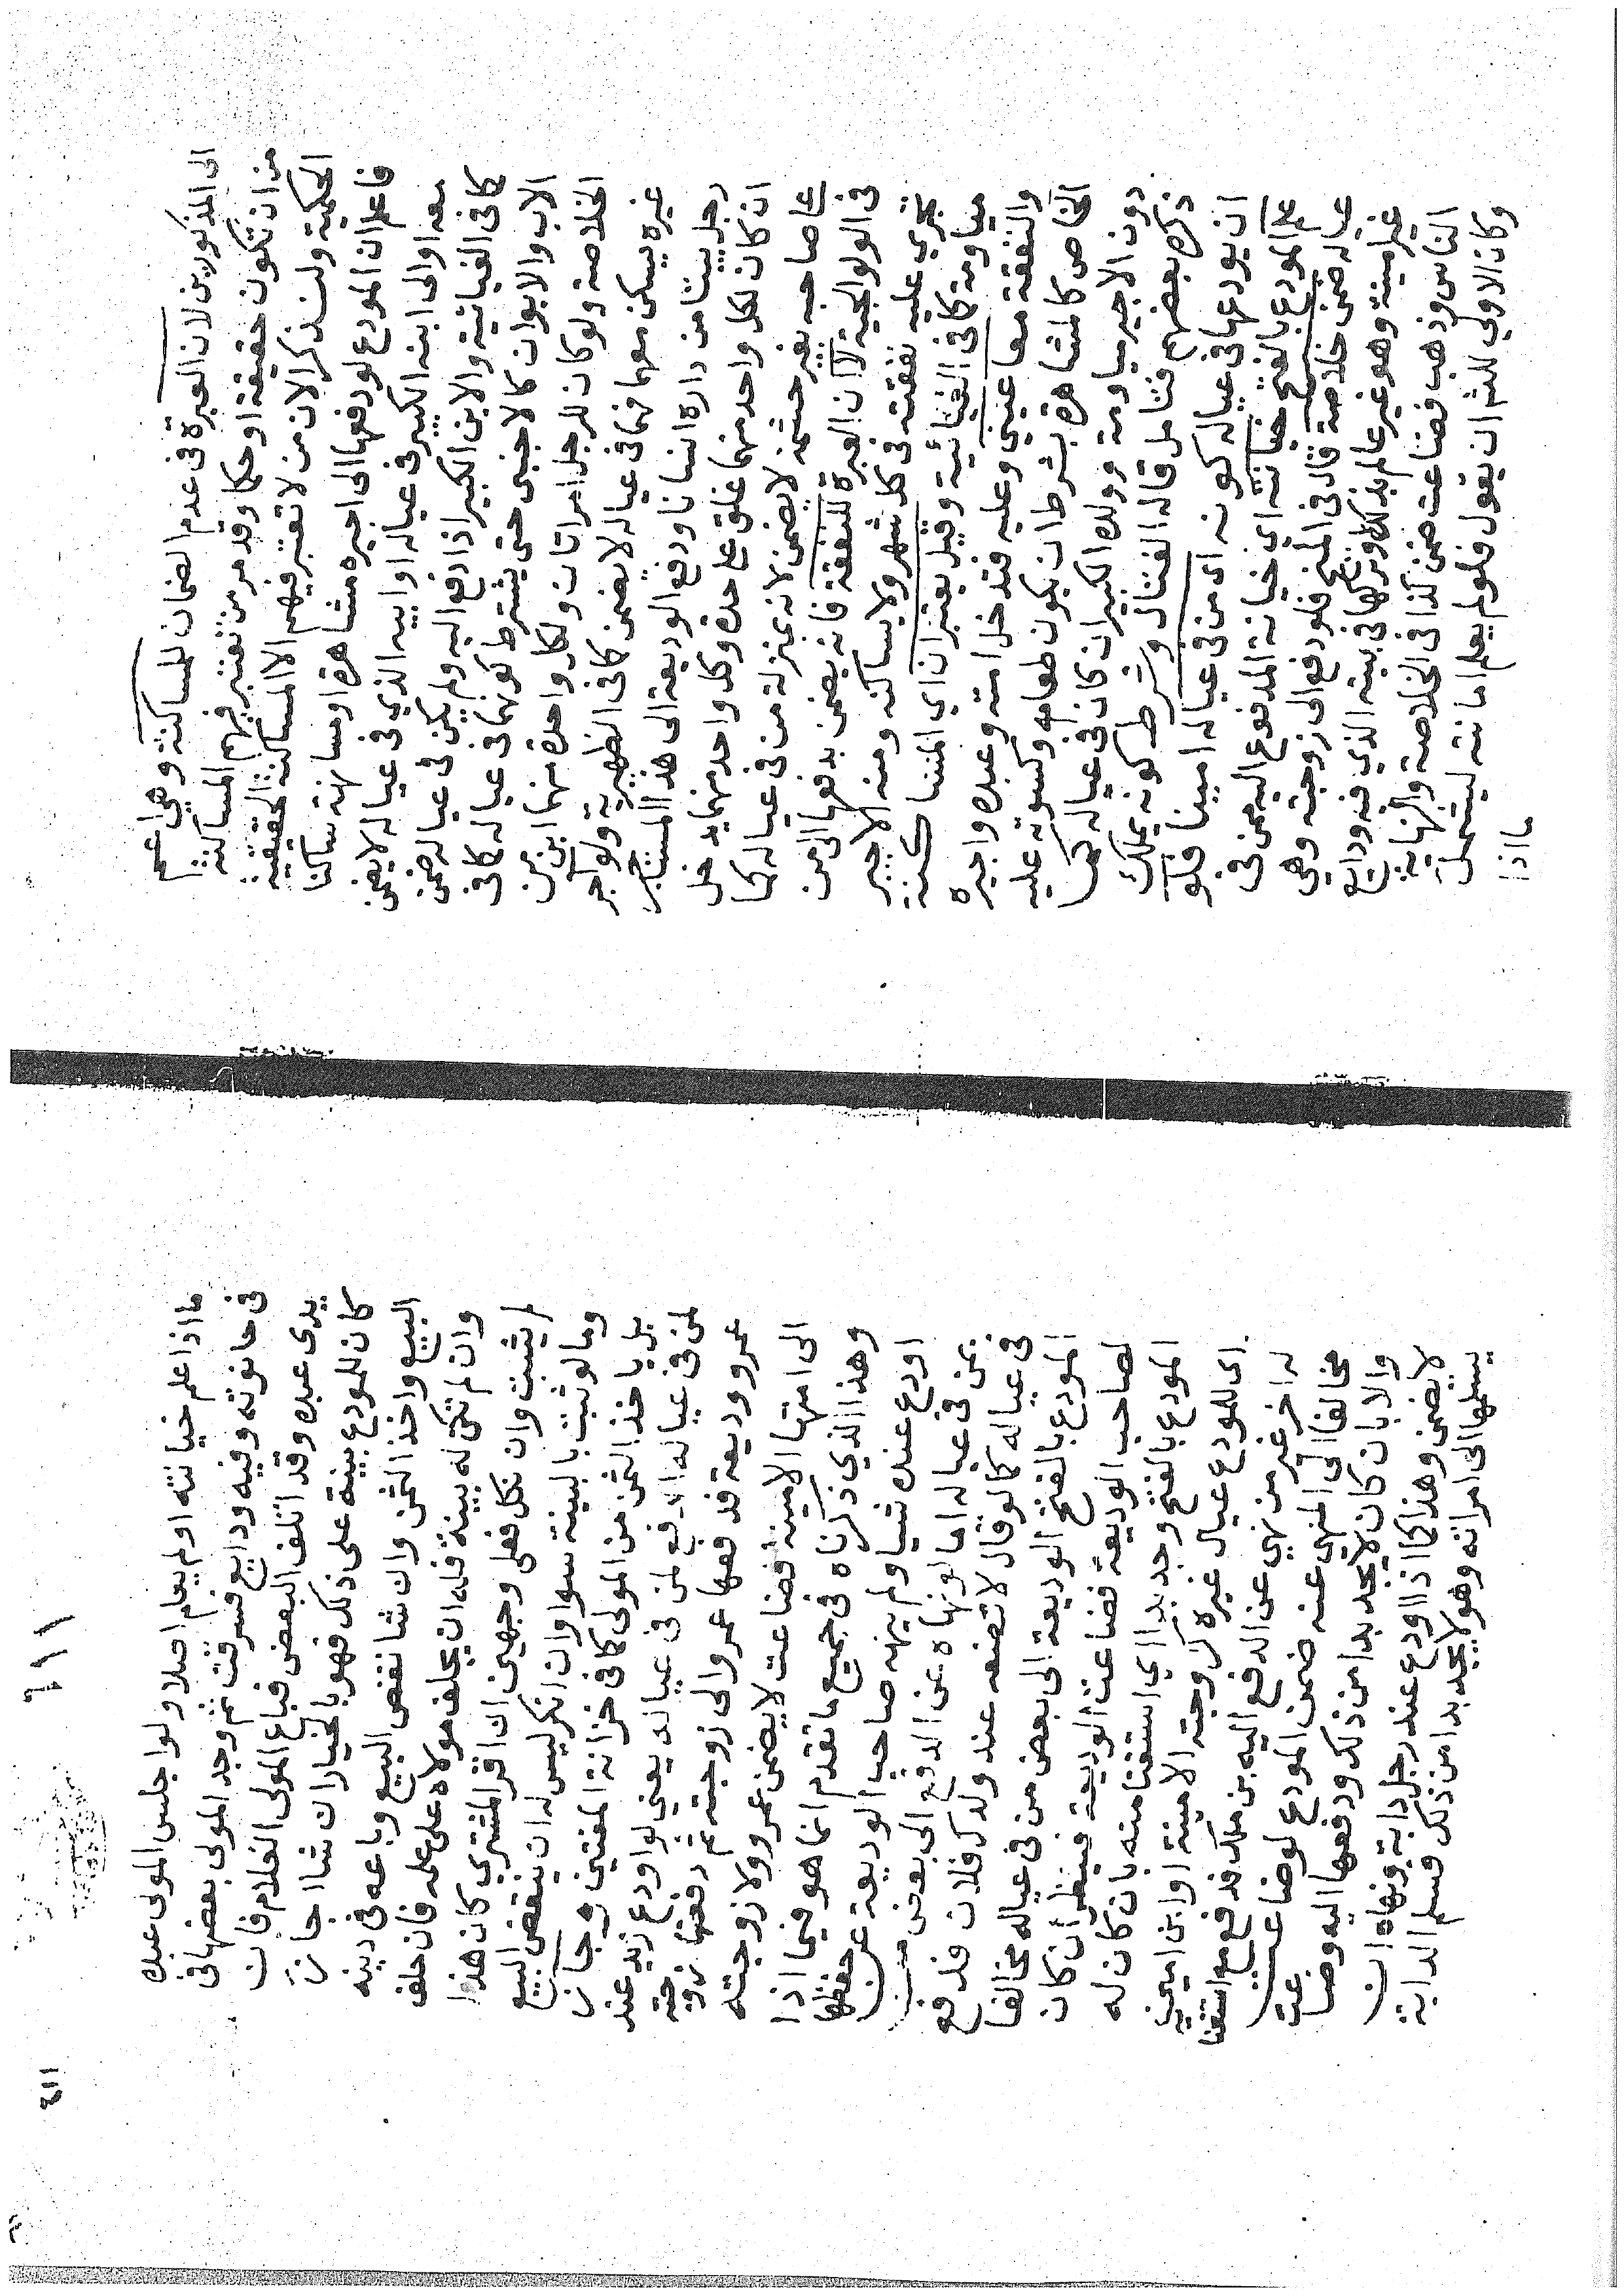 الى المذكورين لان العبرة فى عدم الضمان للمساكنة وهي اعم
من ان تكون حقيقة او حكما وقد مر من تعتبر فيهم المساكنة
الحكمية ولنذكر الان من لا تعتبر فيهم الا المساكنة الحقيقية
فاعلم ان المودع لو دفعها الى اجيره مشاهرة او مسانهة ساكنا
معه او الى ابنه الكبير فى عياله او ابيه الذي فى عياله لا يضمن
كما فى الغياثية والابن الكبير اذا دفع اليه ولم يكن فى عياله ضمن
الاب والابوان كالاجنبى حتى يشترط كونهما فى عياله كما فى
الخلاصة ولو كان للرجل امراتان ولكل واحدة منهما ابن من
غيره يسكن معهما فهما فى عياله لا يضمن كما فى الظهيرية ولو آجر
رجل بيتا من داره انسانا ودفع الوديعة الى هذا المستاجر
ان كان لكل واحد منهما غلق على حدة وكل واحد منهما يدخل
على صاحبه بغير حشمة لا يضمن لانه بمنزلة من فى عياله كما
فى الولوالجية لا ان العبرة للنفقة فانه يضمن بدفعها الى من
تجري عليه نفقته فى كل شهر ولا يساكنه ومنه الاجير
مياومة كما فى الغيائية وقيل يعتبران اي المساكنة
والنفقة معا عيني وعليه فتدخل امته وعبده واجيره
الخاص كالمشاهرة بشرط ان يكون طعامه وكسوته عليه
دون الاجير مياومة وولده الكبير ان كان فى عياله كما
ذكره بعضهم فتامل قاله الفتال وشرط كونه يملك
ان يودعها فى عياله كونه اى من فى عياله امينا فلو
علم المودع بالفتح خيانته اي خيانة المدفوع اليه ممن فى
عياله ضمن خلاصة قال فى المنح فلو دفع الى زوجته وهي
غير امينة وهو غير عالم بذلك او تركها فى بيته الذي فيه ودايع
الناس وذهب فضاعت ضمن كذا فى الخلاصة والنهاية
وكان الاولى للش ان يقول فلو لم يعلم امانته ليشمل
ما اذا
١١٤
ما اذا علم خيانته او لم يعلم اصلا ولو اجلس المولى عبده
فى حانوته وفيه ودايع فسرقت ثم وجد المولى بعضها فى
يدى عبده وقد اتلف البعض فباع المولى الغلام فان
كان للمودع بينة على ذلك فهو بالخيار ان شاا جاز
البيع واخذ الثمن وان شا نقض البيع وباعه فى دينه
وان لم تكن له بينة فله ان يحلف مولاه على علمه فان حلف
لم يثبت وان نكل فعلى وجهين ان اقر المشترى كان هذا
وما لو ثبت بالبينة سوا وان انكر ليس له ان ينقض البيع
بل ياخذ الثمن من المولى كما فى خزانة المفتيين وجاز
لمن فى عياله الدفع لمن فى عياله يعني لو اودع زيد عند
عمرو وديعة فدفعها عمرو الى زوجته ثم دفعتها زوجته
الى امتها الامينة فضاعت لا يضمن عمرو ولا زوجته
وهذا الذي ذكرناه فى جميع ما تقدم انما هو فيما اذا
اودع عنده شيا ولم ينهه صاحب الوديعة عن حفظها
بمن فى عياله اما لو نهاه عن الدفع الى بعض من
فى عياله كما لو قال لا تضعه عند ولدك فلان فدفع
المودع بالفتح الوديعة الى بعض من فى عياله مخالفا
لصاحب الوديعة فضاعت الوديعة فينظر ان كان
المودع بالفتح وجد بدا اي استغنا منه بان كان له
اى للمودع عيال غيره كزوجته الامينة او ابن امين
له اخر غير من نهي عن الدفع اليه بن ملك فدفع مع استغنا
مخالفا الى المنهي عنه ضمن المودع لو ضاعت
والا بان كان لا يجد بدا من ذلك ودفعها اليه وضاعت
لا يضمن وهذا كما اذا اودع عند رجل دابة ونهاه ان
يسلمها الى امراته وهو لا يجد بدا من ذلك فسلم الدابة